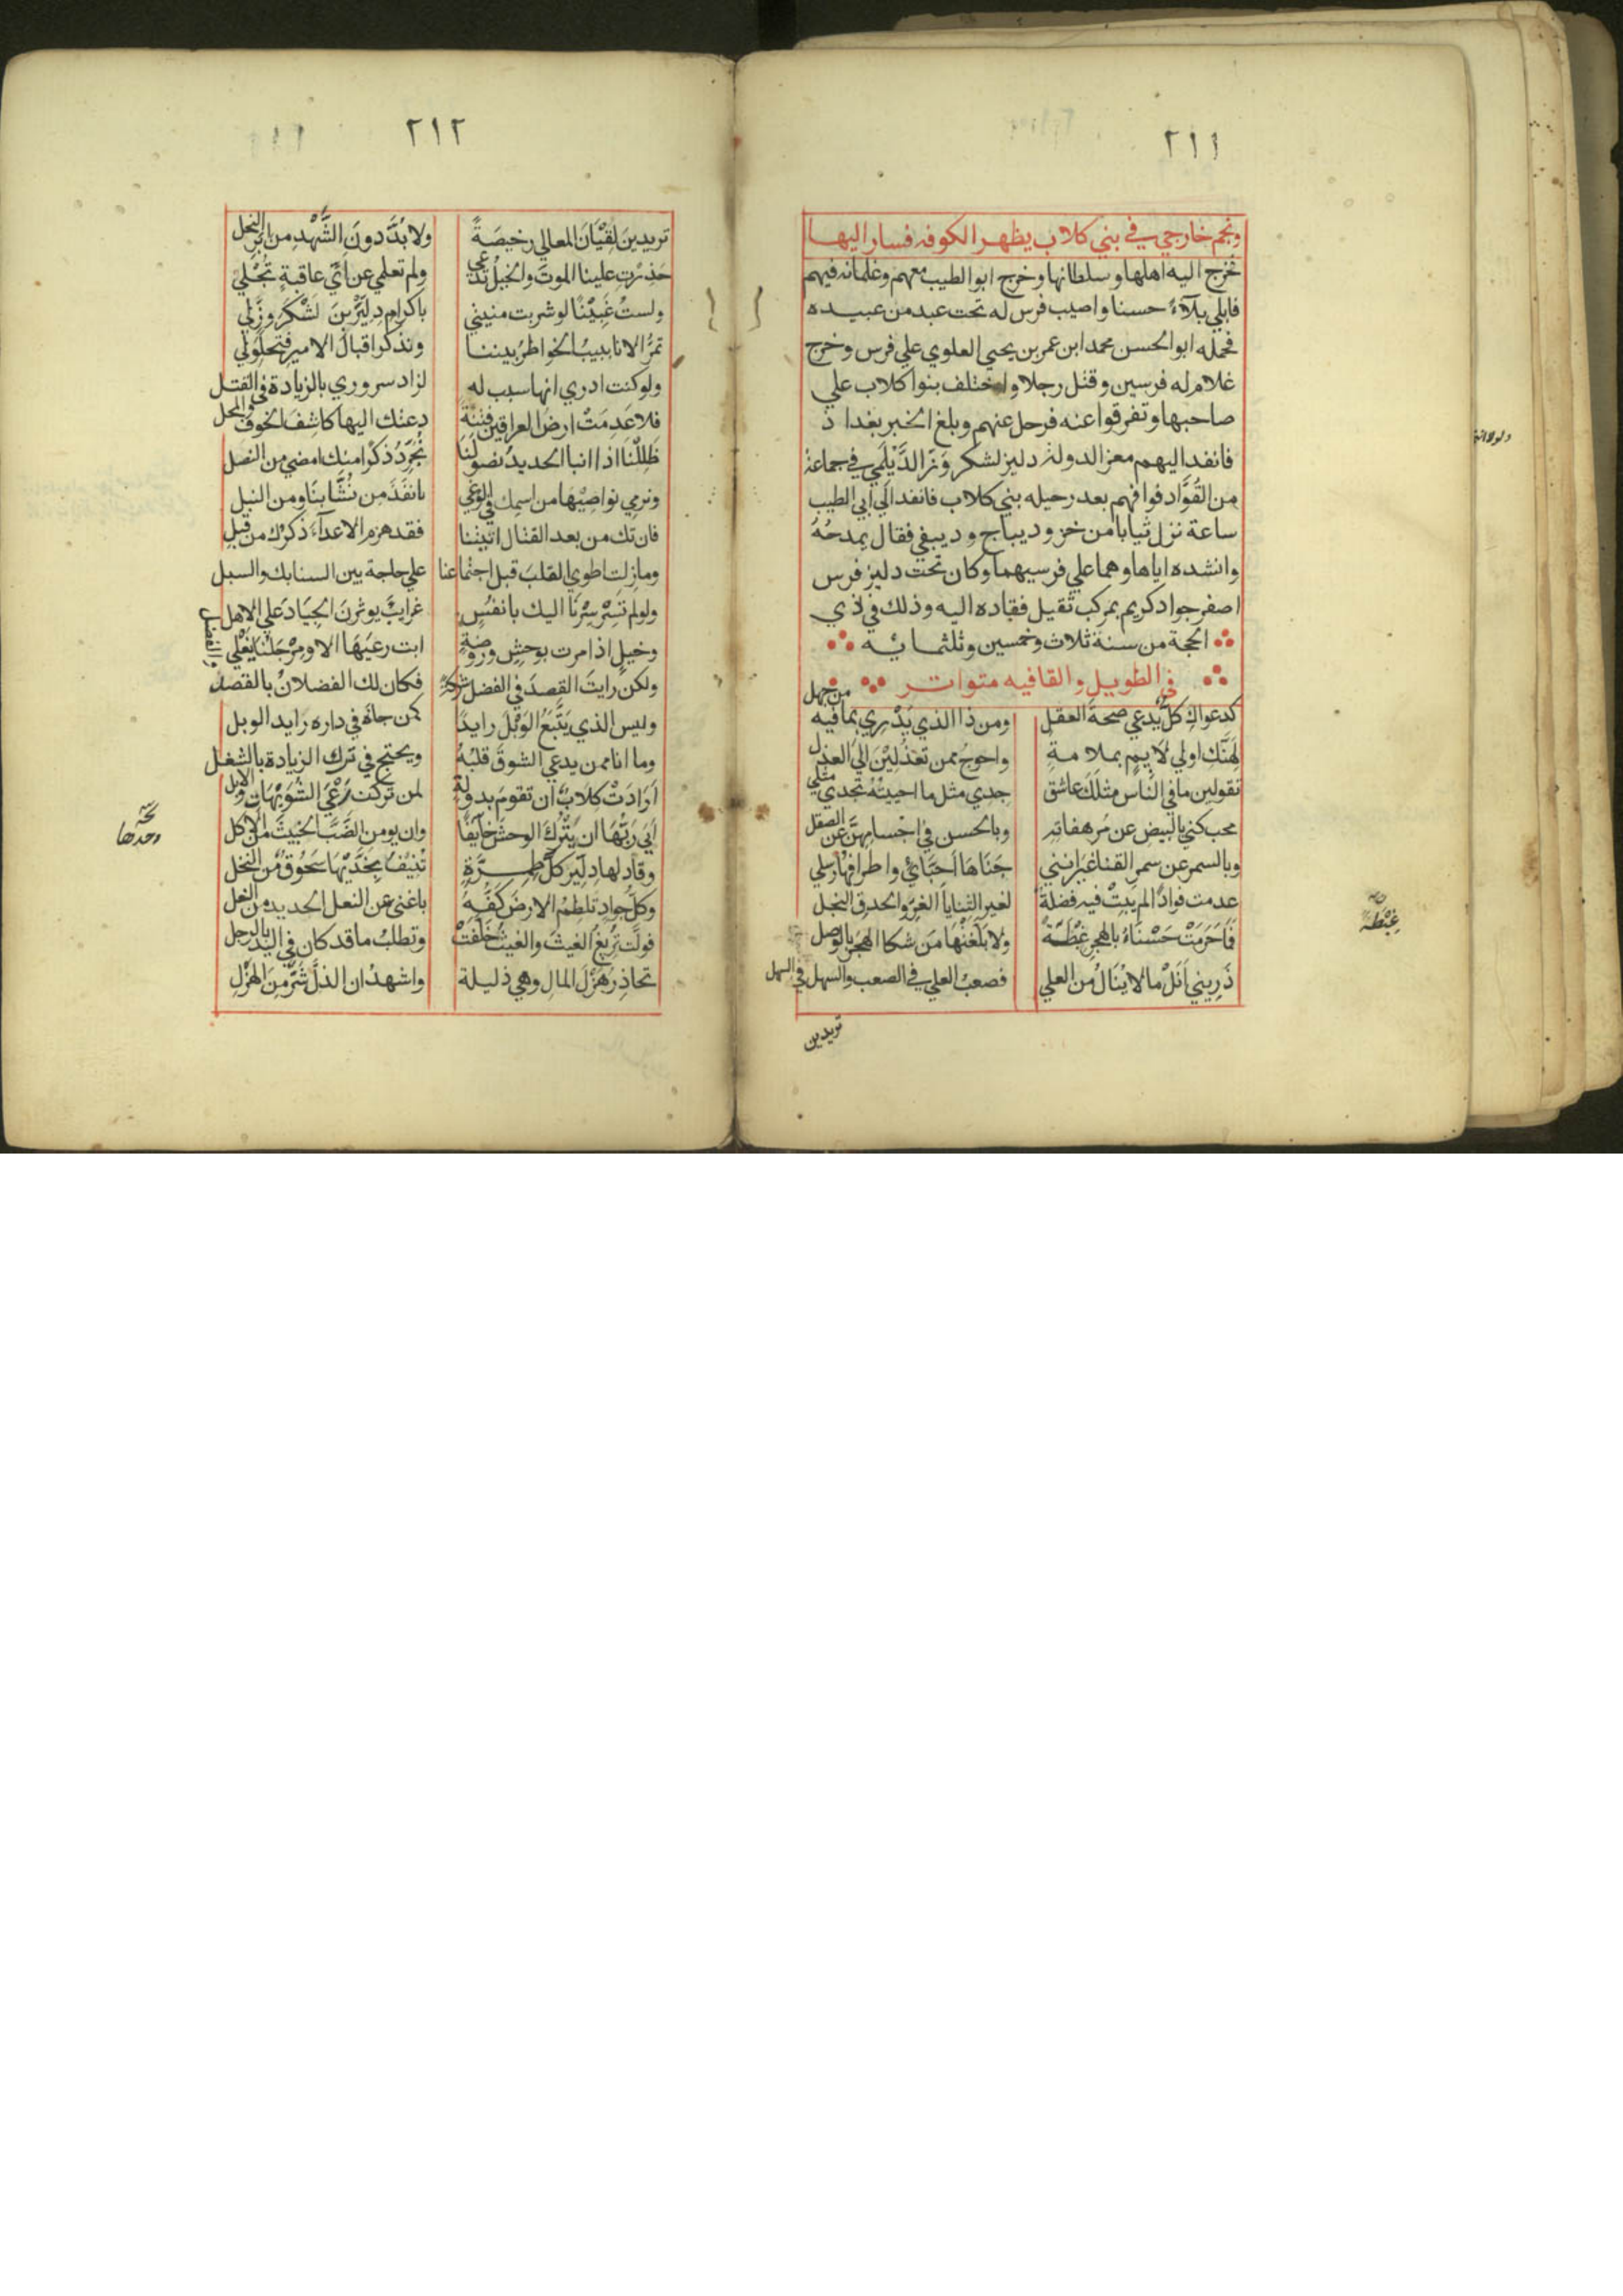 ٢١١
ونجم خارجي في بني كلاب يظهر الكوفه فسار اليها
فخرج اليه اهلها وسلطانها وخرج ابو الطيب معهم وغلمانه فيهم
فابلي بلآءً حسنا واصيب فرس له تحت عبد من عبيده
فحمله ابو الحسن محمد ابن عمر بن يحيي العلوي علي فرس وخرج
غلام له فرسين وقتل رجلا واختلف بنوا كلاب علي
صاحبها وتفرقوا عنه فرحل عنهم وبلغ الخبر بغداذ
فانفد اليهم معز الدولة دليز لشكر وَزّ الدَّيْلَمي في جماعة
من القُوَّاد فوافهم بعد رحيله بني كلاب فانفد الي ابي الطيب
ساعة نزل ثيابا من خز وديباج وديبقي فقال يمدحُهُ
وانشده اياها وهما علي فرسيهما وكان تحت دليز فرس
اصفر جواد كريم بمركب ثقيل فقاده اليه وذلك في ذي
الحجة من سنة ثلاث وخمسين وثلثمائه
في الطويل والقافيه متواتر
كدعواكِ كلٌّ يدعي صحةَ العقل ومن ذا الذي يَدْرِي بما فيه من جهل
لِهَنَّكِ اولي لايمٍ بملامةٍ واحوجُ ممن تعذُلِيْنَ الي العذل
تقولين ما في الناس مثلَكَ عاشق جدي مثل ما احببتُهُ تجدي مثلي
محب كني بالبيض عن مُرهفاتِهِ وبالحسن في اجسامهنَّ عن الصقل
وبالسمر عن سمر القنا غيرَ انني جَنَاهَا اَحِبَّايَ واطرافها رسلي
عدمت فواداً لم يَبِتْ فيه فضلةٌ لغير الثنايا الغرِّ والحدق النجل
فَاَحَرَمَتْ حَسْنَاءُ بالهجر غِبْطَةً ولا بَلَّغَتْهَا مَن شكا الهَجْرَ بالوصل
ذَرِيني اَنَلْ ما لا يُنَالُ من العلي فصعبُ العلي في الصعب والسهل في السهل
تريدين
غِبْطَة
٢١٢
تريدينَ لِقْيَانَ المعالي رخيصَةً ولا بُدَّ دونَ الشَّهْدِ من اِبَرِ النحل
حَذِرْتِ علينا الموتَ والخيلُ تدّعي ولم تعلمي عن اَيِّ عاقبةٍ تُجْلي
ولستُ غَبِيْنًا لو شربت منيتي باكرام دِلَيَّرَّ بنَ لَشْكَرَ وزَّلي
تمرُّ الانابيبُ الخواطرُ بيننا ونذكر اقبالَ الامير فتحلَوْلي
ولو كنت ادري انها سبب له لزاد سروري بالزيادة في القتل
فلا عَدِمَتْ ارضُ العراقين فتنةً دعتك اليها كاشِفَ الخوف والمحل
ظَلِلْنَا اذا انبا الحديدُ نصولَنَا نُجَرِّدُ ذكرا منك امضي من النصل
ونرمي نواصِيْهَا من اسمك في الوغي بانفَذَ من نُشَّابنَا ومن النبل
فان تك من بعد القتال اتيتنا فقد هزم الاعدآءَ ذكرُك من قبل
وما زلت اطوي القلبَ قبل اجتماعنا علي حاجة بين السنابك والسبل
ولو لم تَسِرْ سِرْنَا اليك بانفسٍ غرايبَ يوثرنَ الجيادَ علي الاهل
وخيلٍ اذا مرت بوحشٍ وروضةٍ ابت رعيَهَا الا ومِرْجَلُنَا يغلي
ولكن رايتَ القصدَ في الفضل شركة فكان لك الفضلانُ بالقصد
وليس الذي يَتَّبَعُ الوَبْلَ رايدًا كمن جاءَه في داره رايد الوبل
وما انا ممن يدعي الشوقَ قلبُهُ ويحتج في ترك الزيادة بالشغل
اَرَادَتْ كلابٌ ان تقومَ بدولة لمن تركت رَعْيَ الشُوَيْهَاتِ والابل
اَبَي رَبُّهَا ان يَتْرُكَ الوحشَ خايفًا وان يومن الضَّبَّ الخبيثَ من الاكل
وقاد لها دِلَيَّر كلَّ طِمِرَّةٍ تُنِيْفُ بِخَدَّيْهَا سَحُوْقٌ من النخل
وكلَّ جوادٍ تلطِمُ الارضَ كفُّهُ باغنَي عن النعل الحديد من النعل
فولَّتْ تُرِيْغُ الغيثَ والغيثُ خلَّفَتْ وتطلبُ ما قد كان في اليد بالرجل
تحاذِرَ هَزْلَ المالِ وهي ذليلة واشهدُ ان الذلَّ شَرٌّ مِنَ الهَزْلِ
وحدها